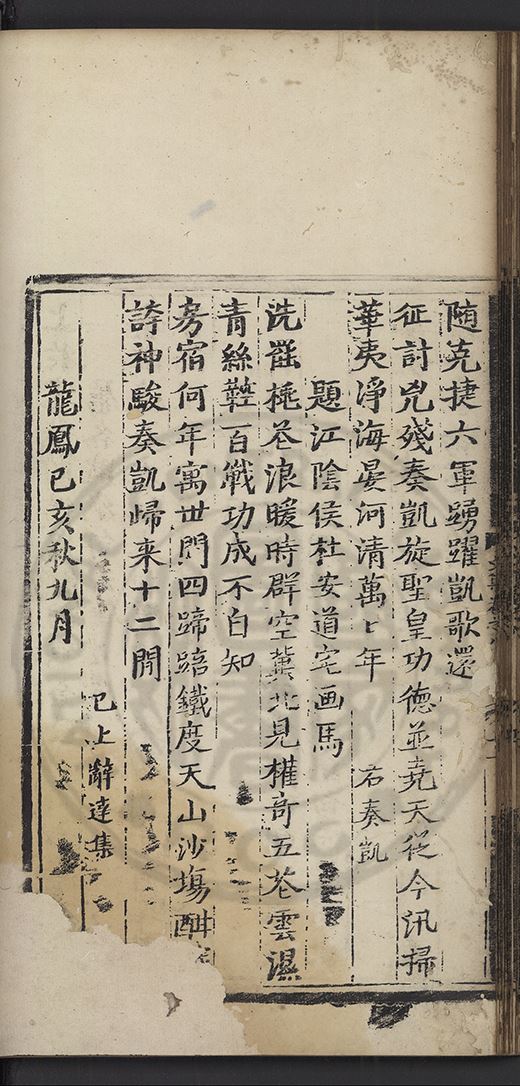 随克捷六軍踴躍凱歌還
征討兇殘奏凱旋聖皇功德並堯天從今汛掃
華夷淨海晏河清萬〻年 右奏凱
題江陰侯杜安道宅画馬
洗罷桃花浪暖時群空冀北見權奇五花雲濕
青絲鞚百戰功成不自知
房宿何年寓世門四蹄踣鐵度天山沙場酣
誇神駿奏凱歸来十二閒
已上辭達集
龍鳳己亥秋九月